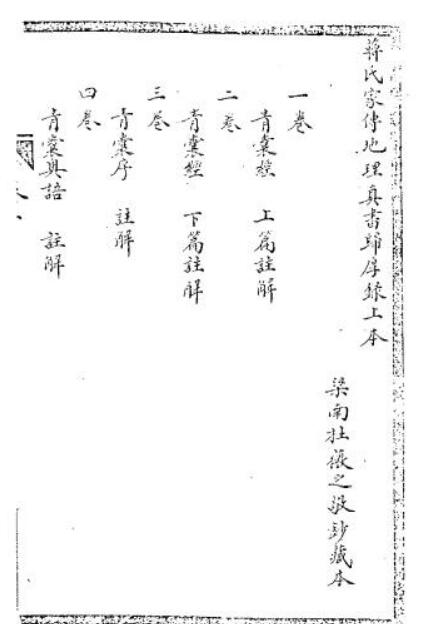 蔣氏家傳地理真書歸厚錄上本
梁南 張之敬鈔藏本
一卷
青囊經 上篇註解
二卷
青囊經 下篇註解
三卷
青囊序 註解
四卷
青囊奧語 註解